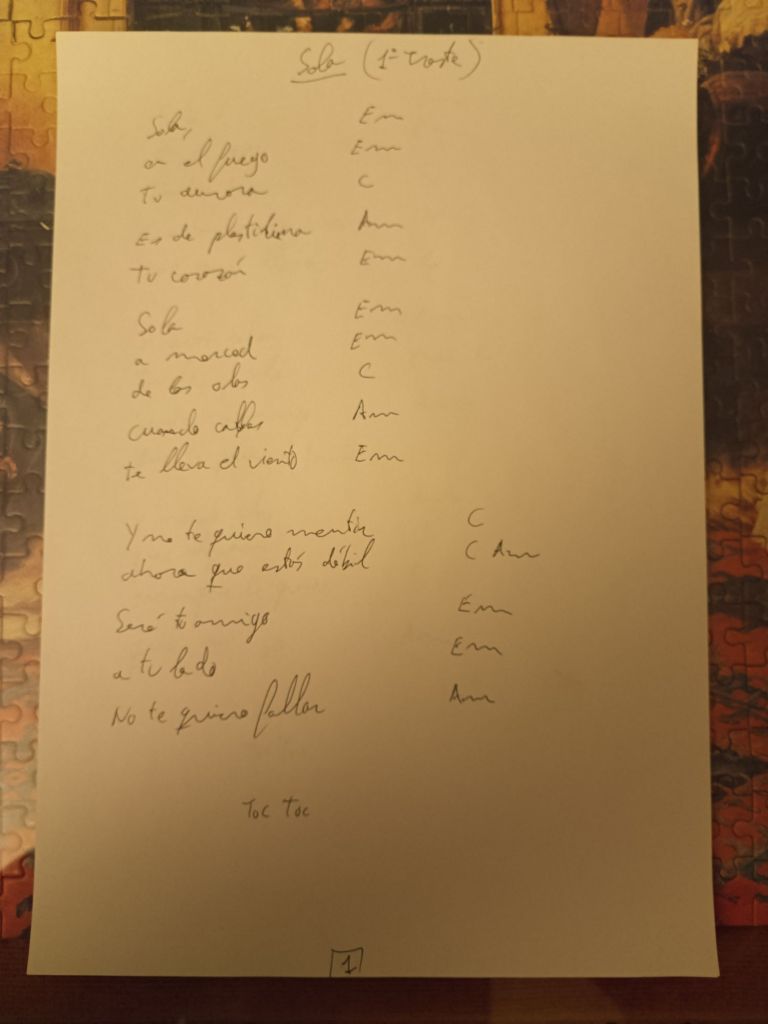 Sola (1er traste)
Sola, Em
en el fuego Em
Tu aurora C
Es de plastilina Am
Tu corazón Em
Sola Em
a merced Em
de las olas C
cuando callas Am
te lleva el viento Em
Y no te quiero mentir C
ahora que estás débil C Am
Seré tu amigo Em
a tu lado Em
No te quiero fallar Am
Toc Toc
1